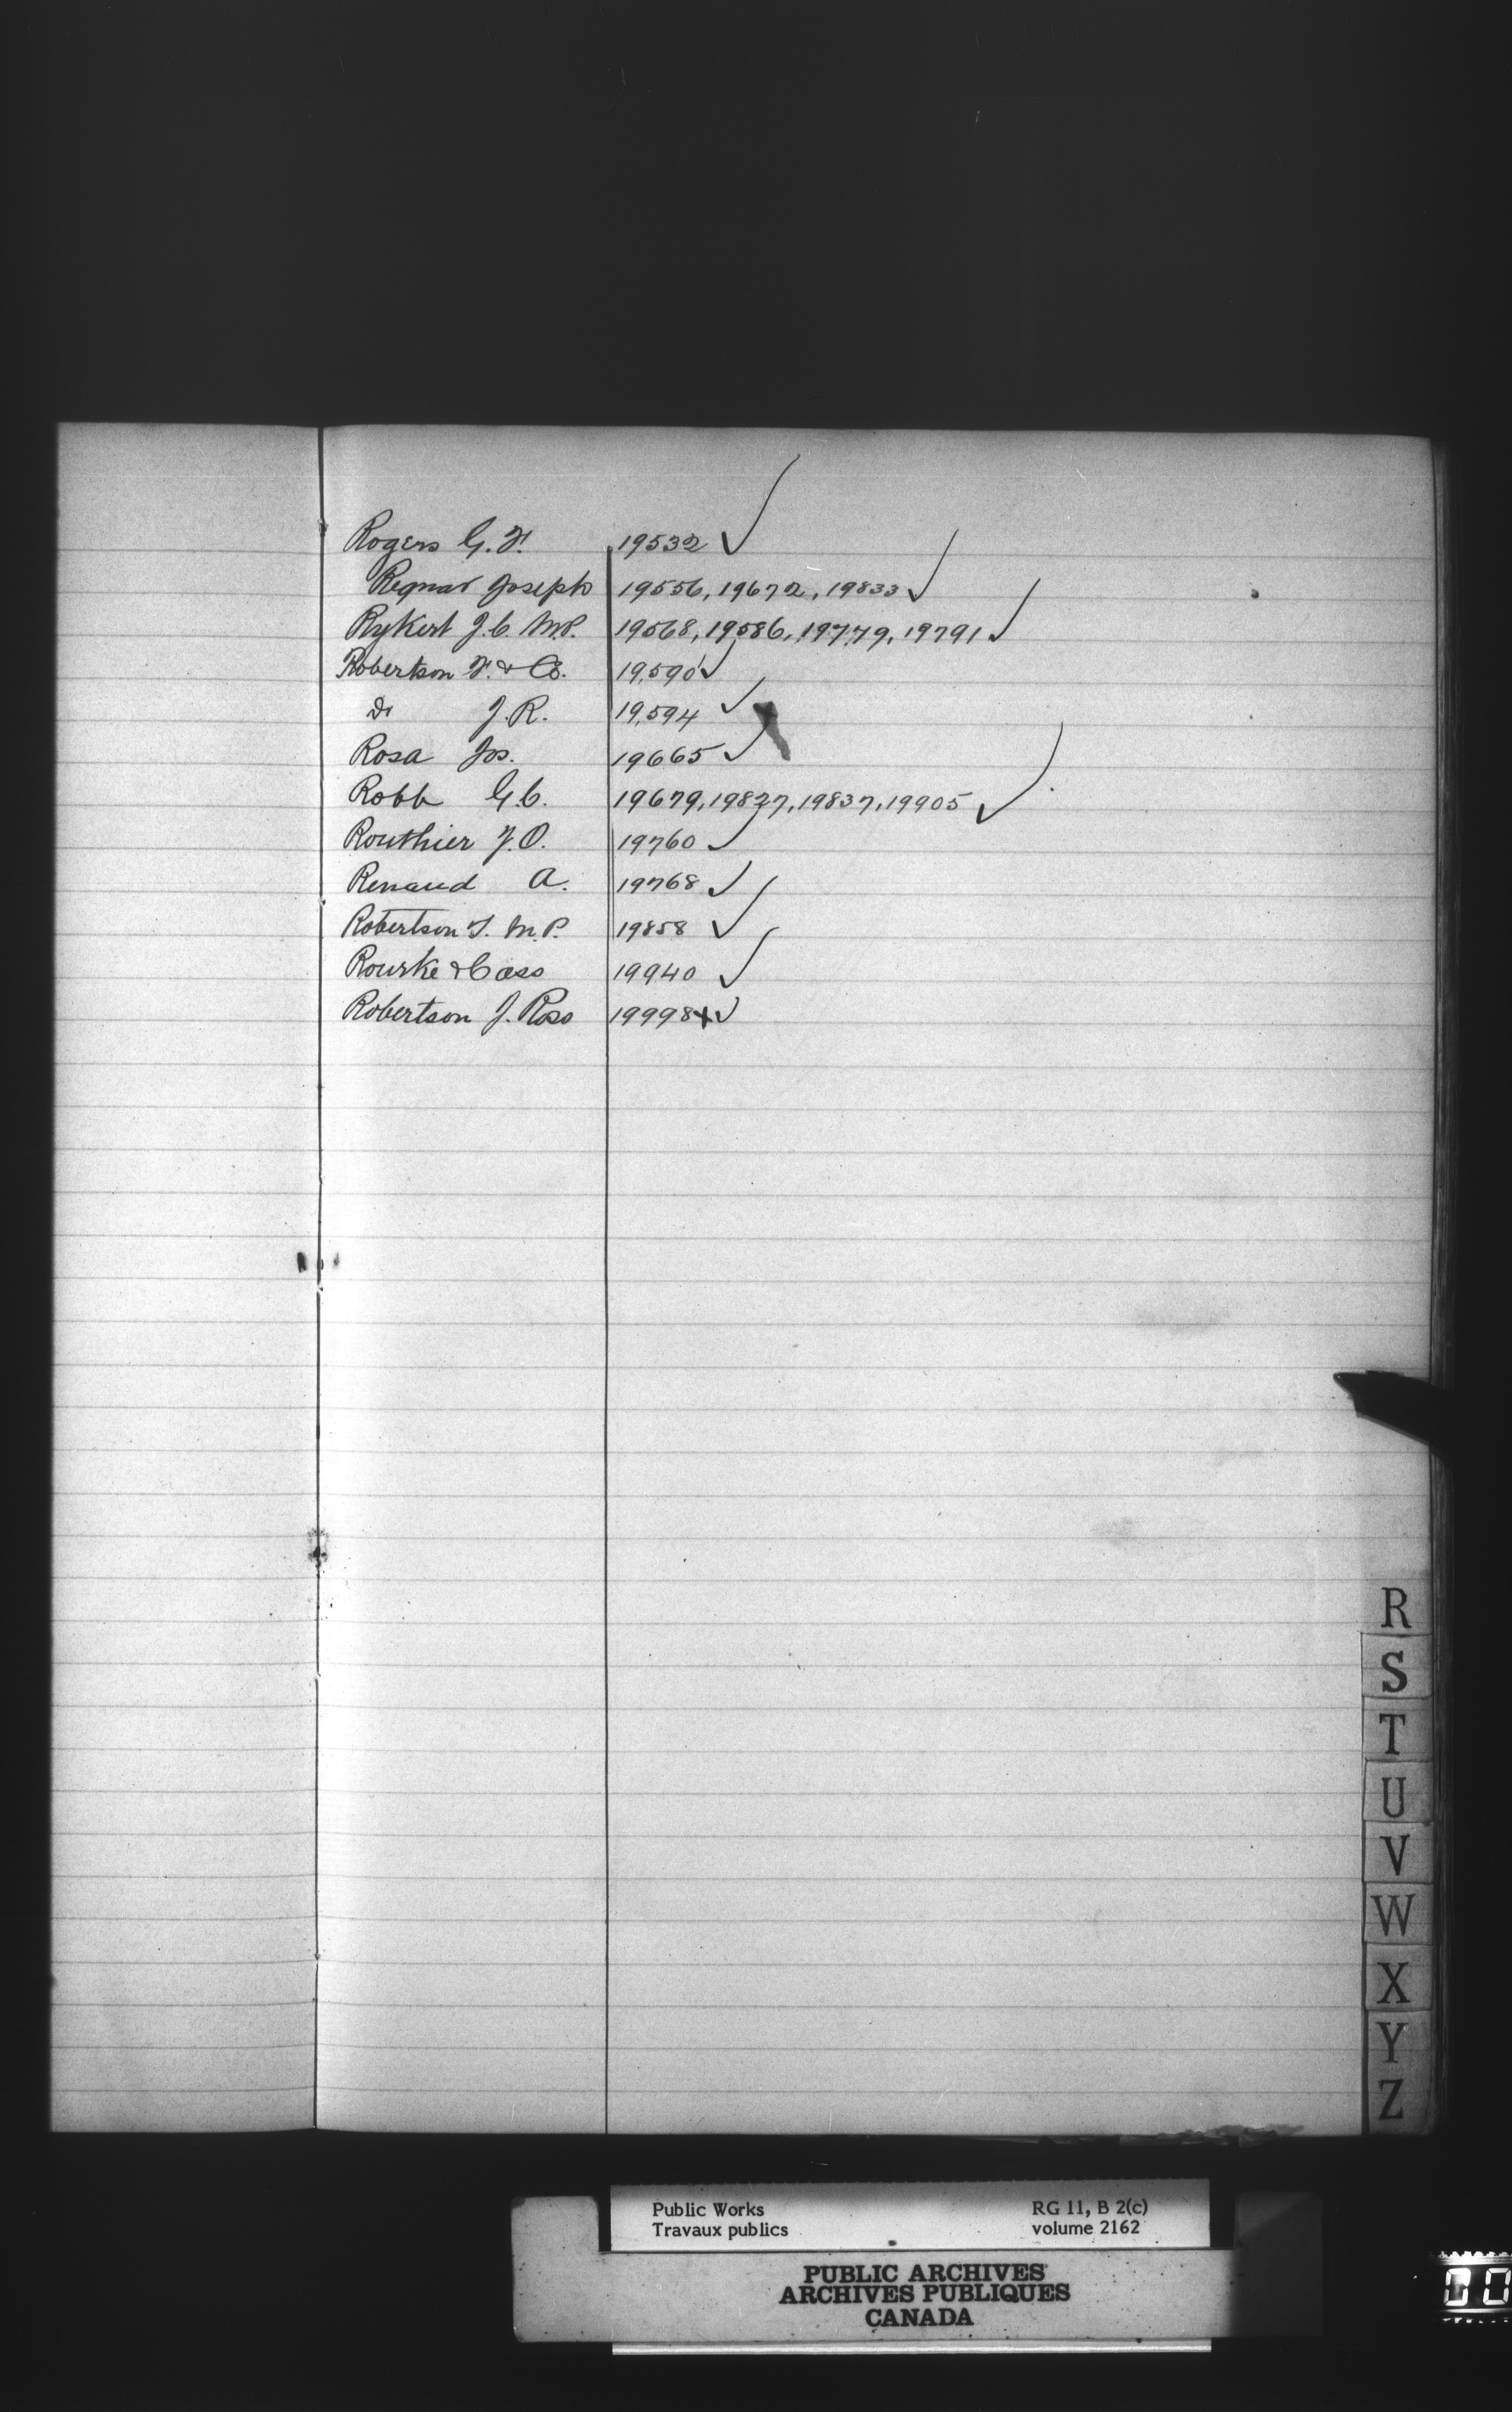 Rogers G. F. 19532 ✓
Regnar Joseph 19556, 19672, 19833 ✓
Rykert J. C. M.P. 19568, 19586, 19779, 19791 ✓
Robertson F. & Co. 19,590 ✓
Do J. R. 19,594 ✓
Rosa Jos. 19665 ✓
Robb G. C. 19679, 19827, 19837, 19905 ✓
Routhier J. O. 19760 ✓
Renaud A. 19768 ✓
Robertson T. M.P. 19858 ✓
Rourke & Cass 19940 ✓
Robertson J. Ross 19998 x ✓
R
S
T
U
V
W
X
Y
Z
Public Works RG 11, B 2(c)
Travaux publics volume 2162
PUBLIC ARCHIVES
ARCHIVES PUBLIQUES
CANADA